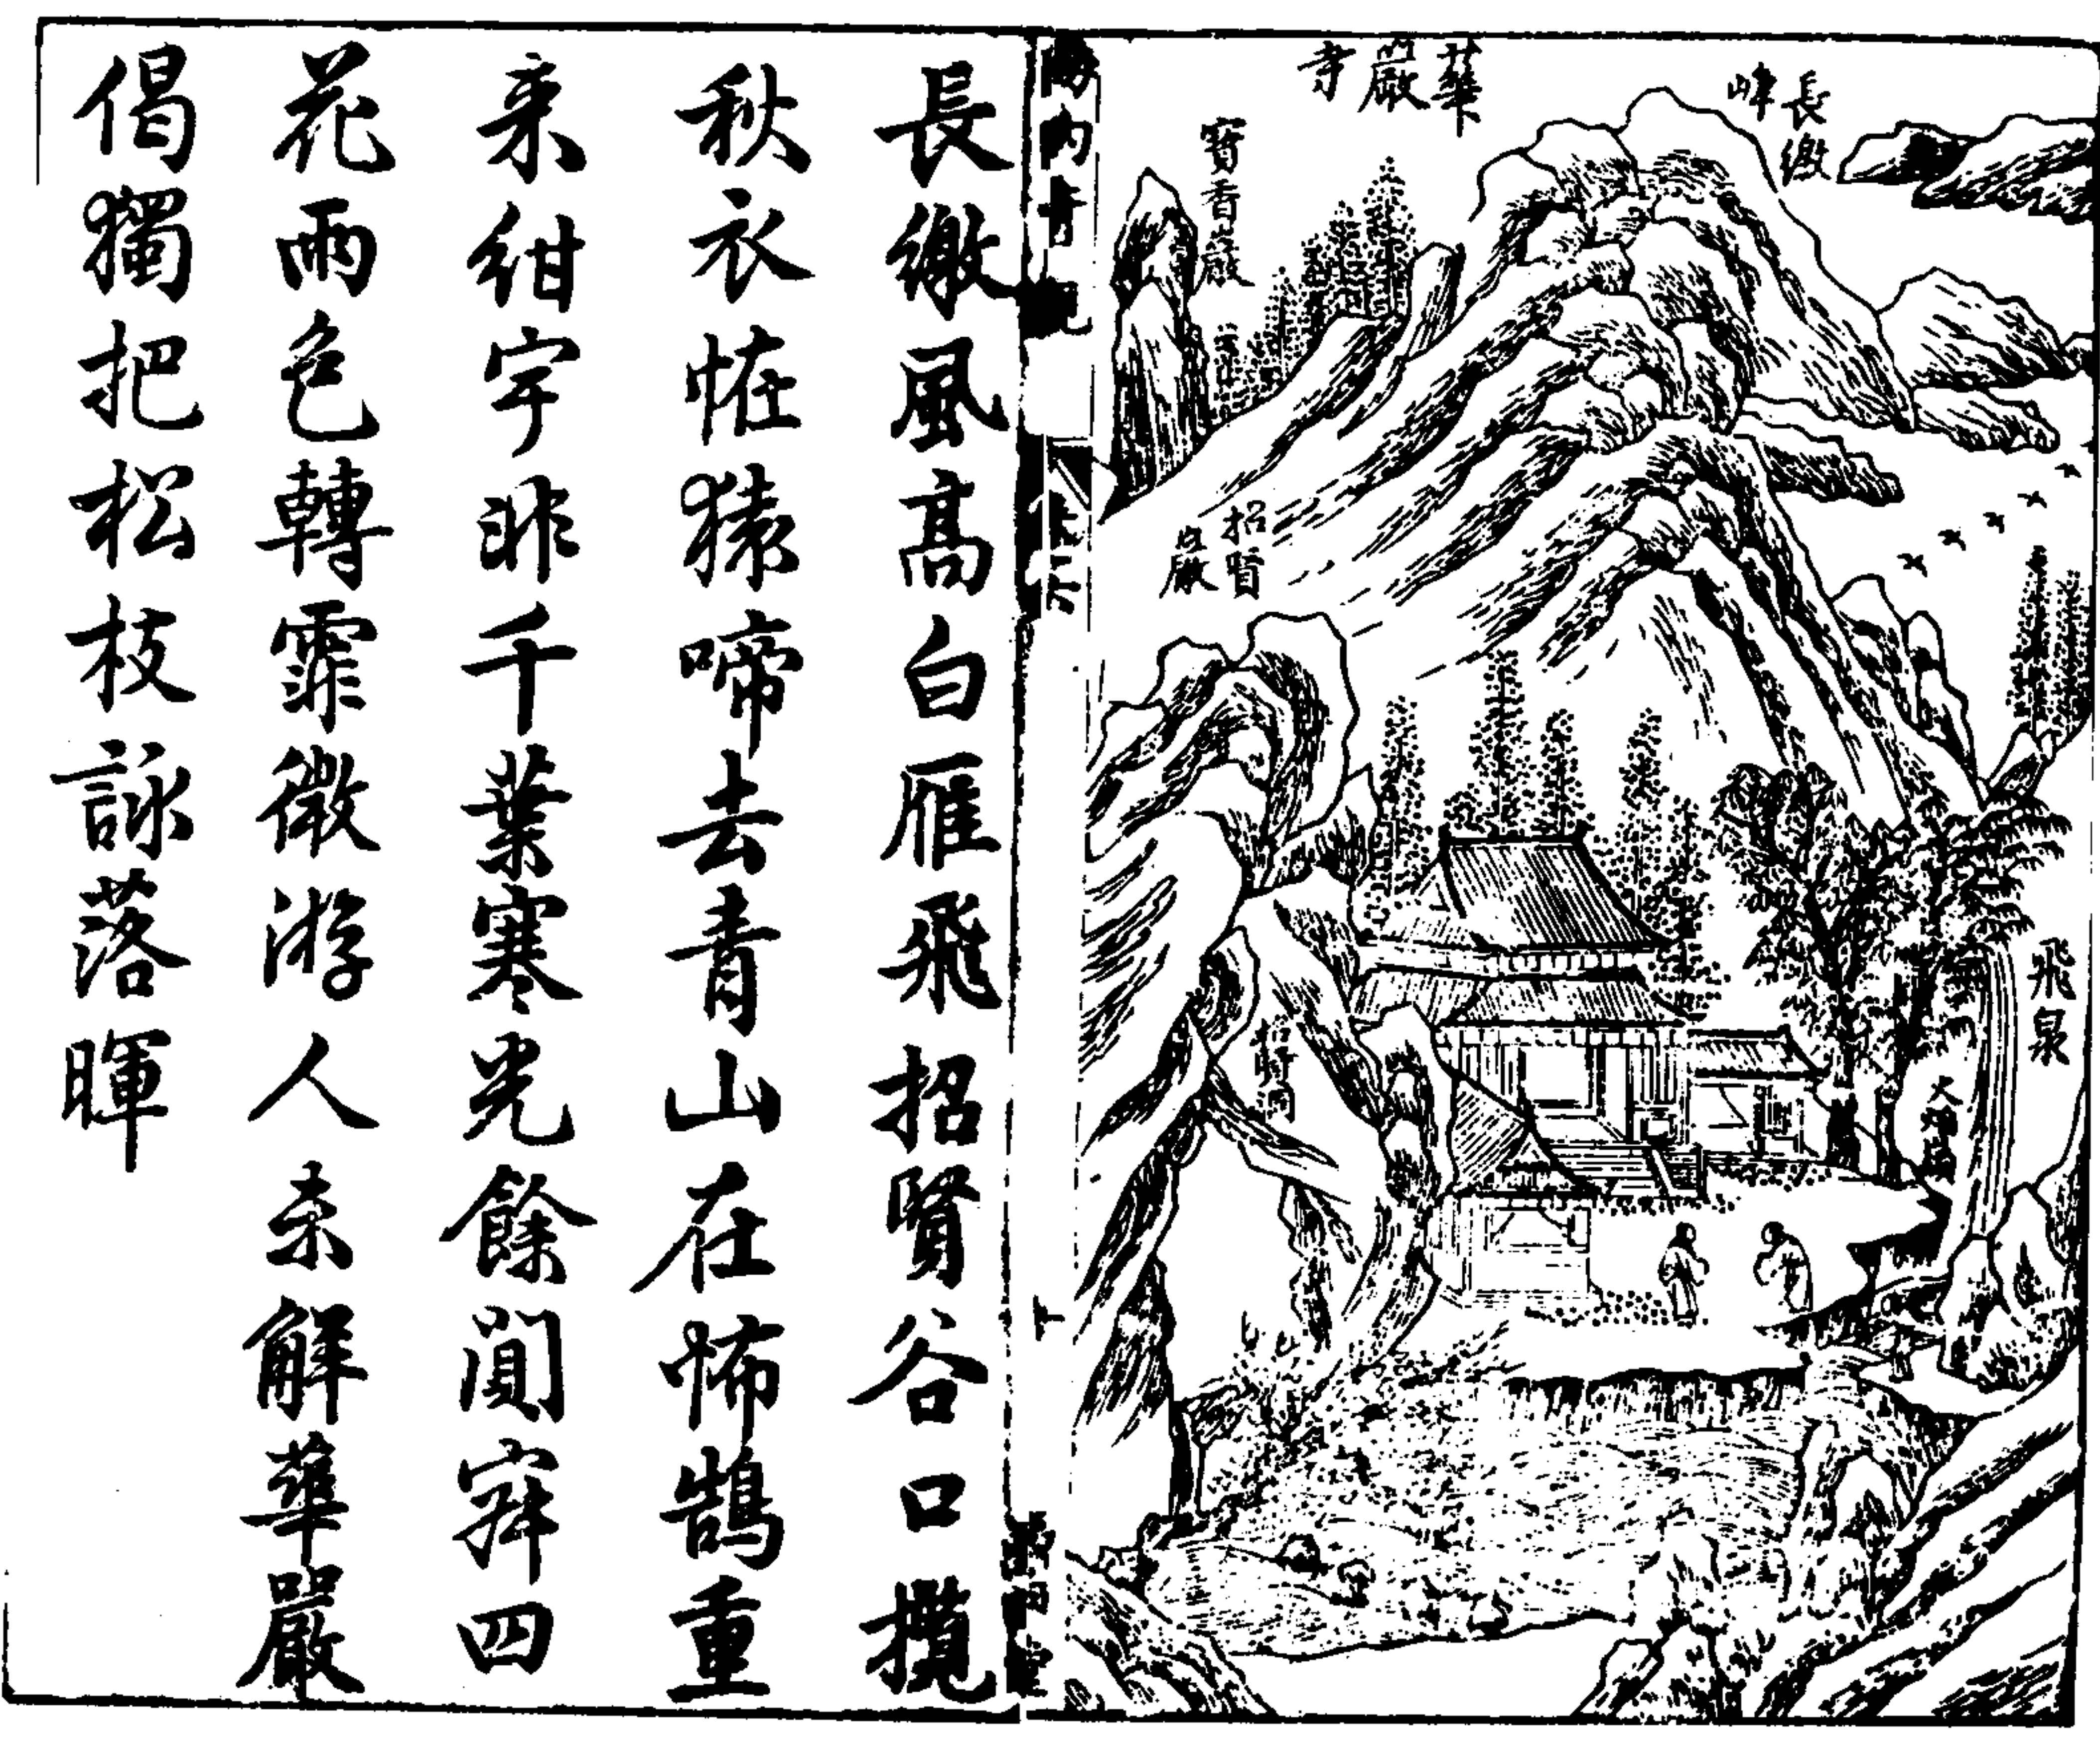 長繖
峰
華
嚴
寺
寶香巖
招賢
巖
飛泉
長繖風高白雁飛招賢谷口攬
秋衣恠猿啼去青山在怖鵠重
来紺宇非千葉寒光餘闃寂四
花雨色轉霏微游人未解華嚴
偈獨把松枝詠落暉